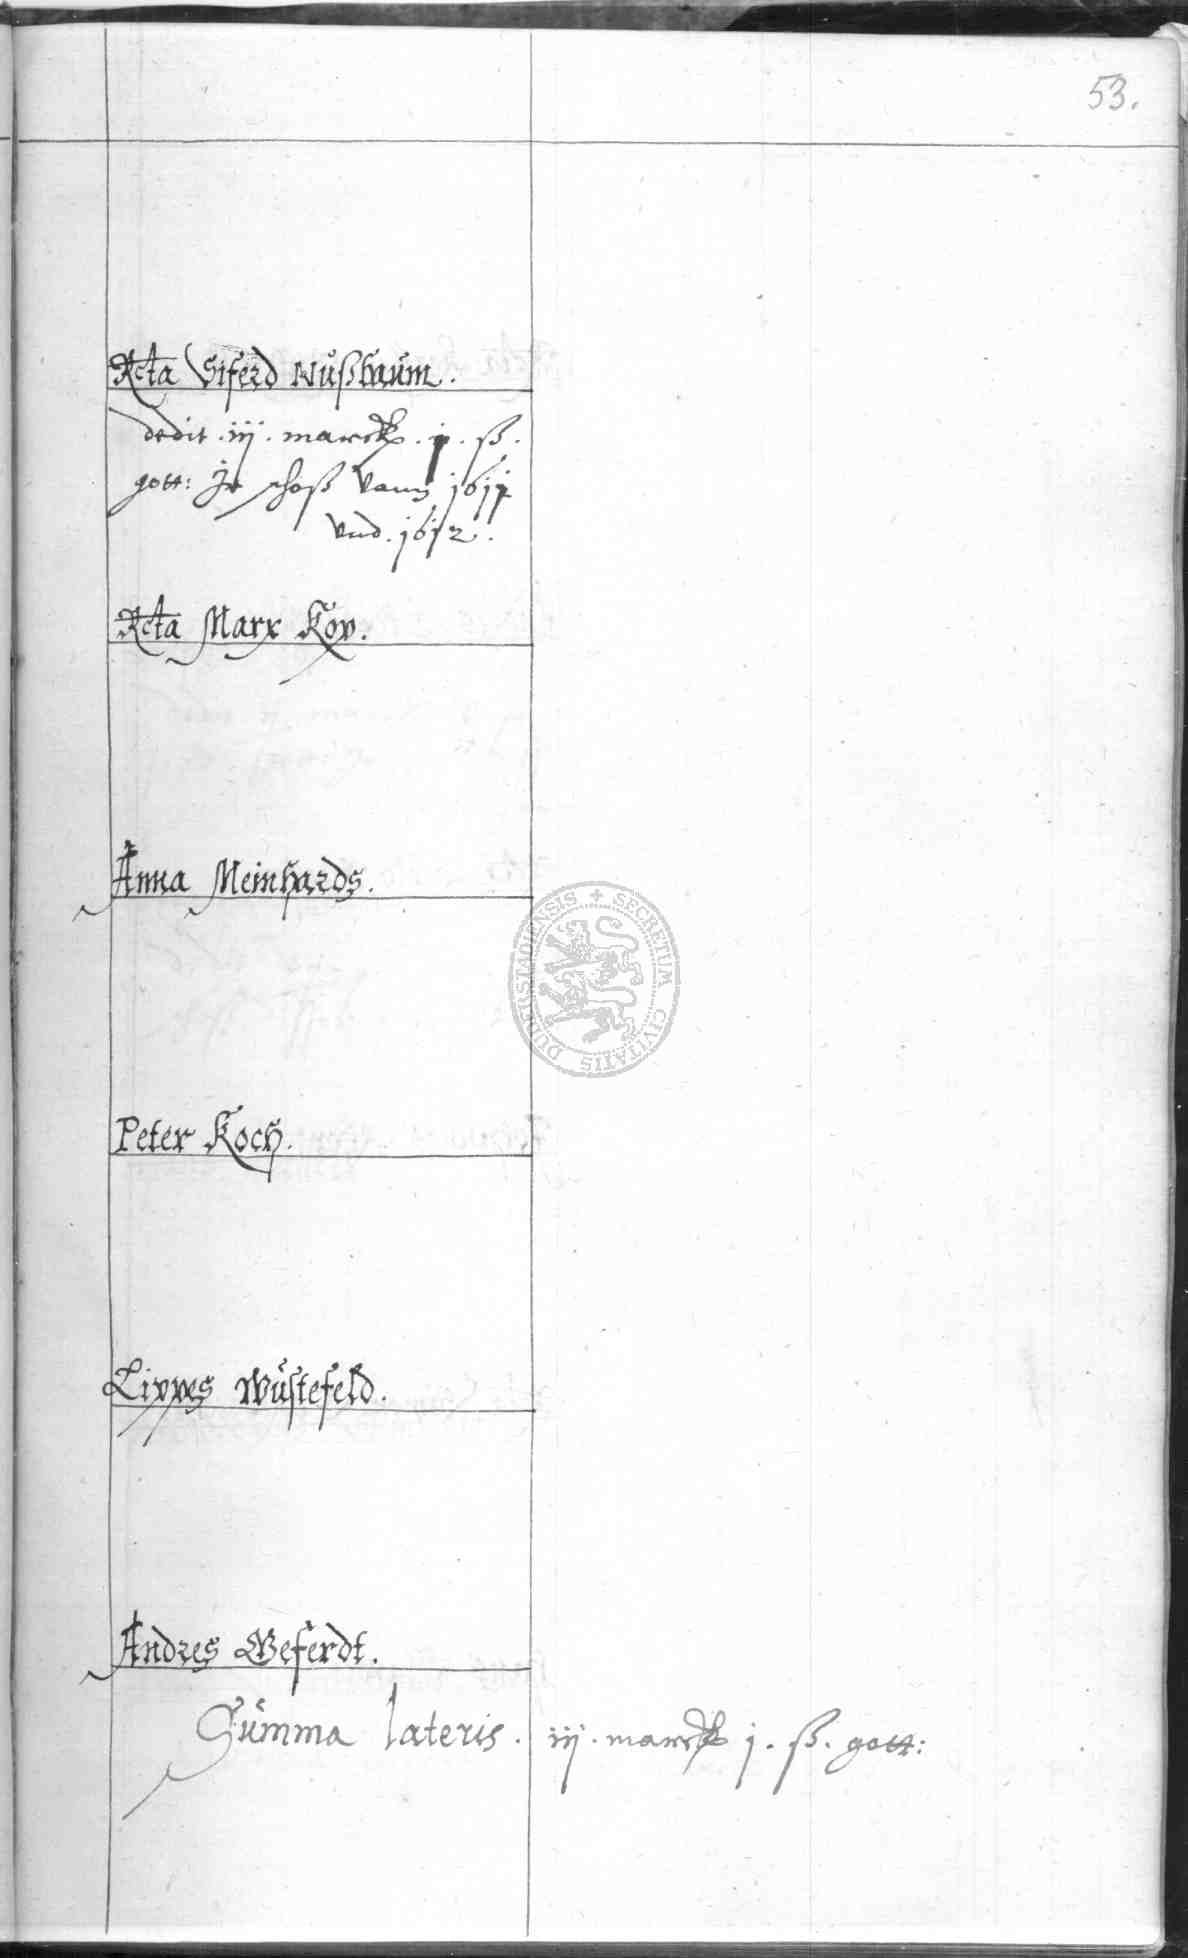 53.
Acta Siferd Nußbaum.
dedit .iij. marck . j . ß .
gott: Ir schoß vann 1611
vnd . 1612 .
Acta Marx Kop.
Anna Meinhards.
SECRETUM CIVITATIS DUDERSTADIENSIS
Peter Koch.
Lippes Wüstefeld.
Andres Geferdt.
Summa lateris . iij . marck j . ß . gott: